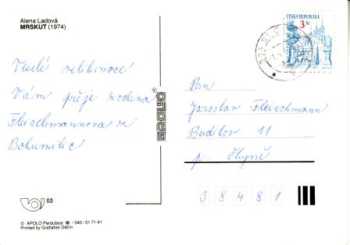 Alena Ladová
MRSKUT (1974)
Veselé velikonoce
Vám přeje rodina
Fleischmannova za
Bohumilic
APOLO
03
© APOLO Pardubice ☎ 040 / 51 71 41
Printed by Grafiatisk Děčín
ČESKÁ REPUBLIKA
3 Kč
Pan
Jaroslav Fleischmann
Budilov 11
p. Čkyně
38481